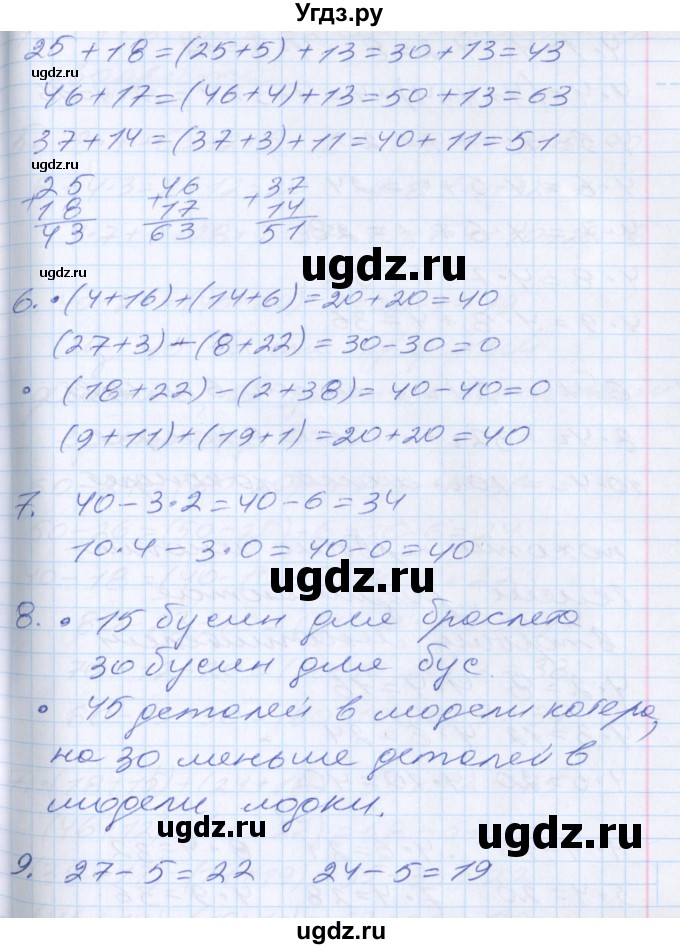 Угдз.ру
25+18=(25+5)+13=30+13=43
ugdz.ru
46+17=(46+4)+13=50+13=63
37+14=(37+3)+11=40+11=51
ugdz.ru
25 46 37
+ + +
18 17 14
43 63 51
ugdz.ru
ugdz.ru
6. • (4+16)+(14+6)=20+20=40
(27+3)-(8+22)=30-30=0
• (18+22)-(2+38)=40-40=0
(9+11)+(19+1)=20+20=40
7. 40-3•2=40-6=34
10•4-3•0=40-0=40
ugdz.ru
8. • 15 бусин для браслета
30 бусин для бус.
• 45 деталей в модели катера,
на 30 меньше деталей в
модели лодки.
ugdz.ru
ugdz.ru
9. 27-5=22 24-5=19
ugdz.ru